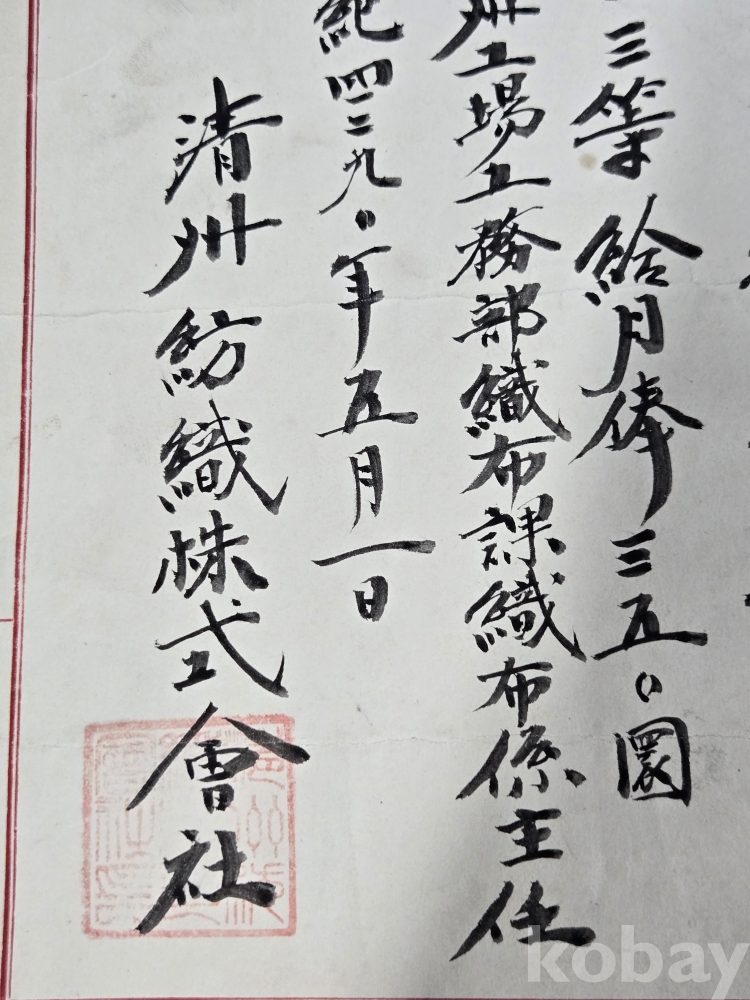 三等給月俸三五〇圜
州工場工務部織布課織布係主任
紀四二九〇年五月一日
清州紡織株式會社
kobay